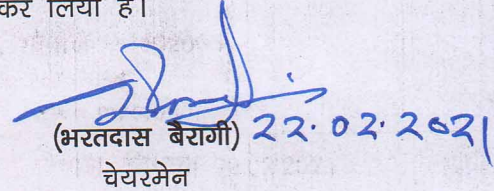 कर लिया है।
(भरतदास बैरागी) 22.02.2021
चेयरमेन